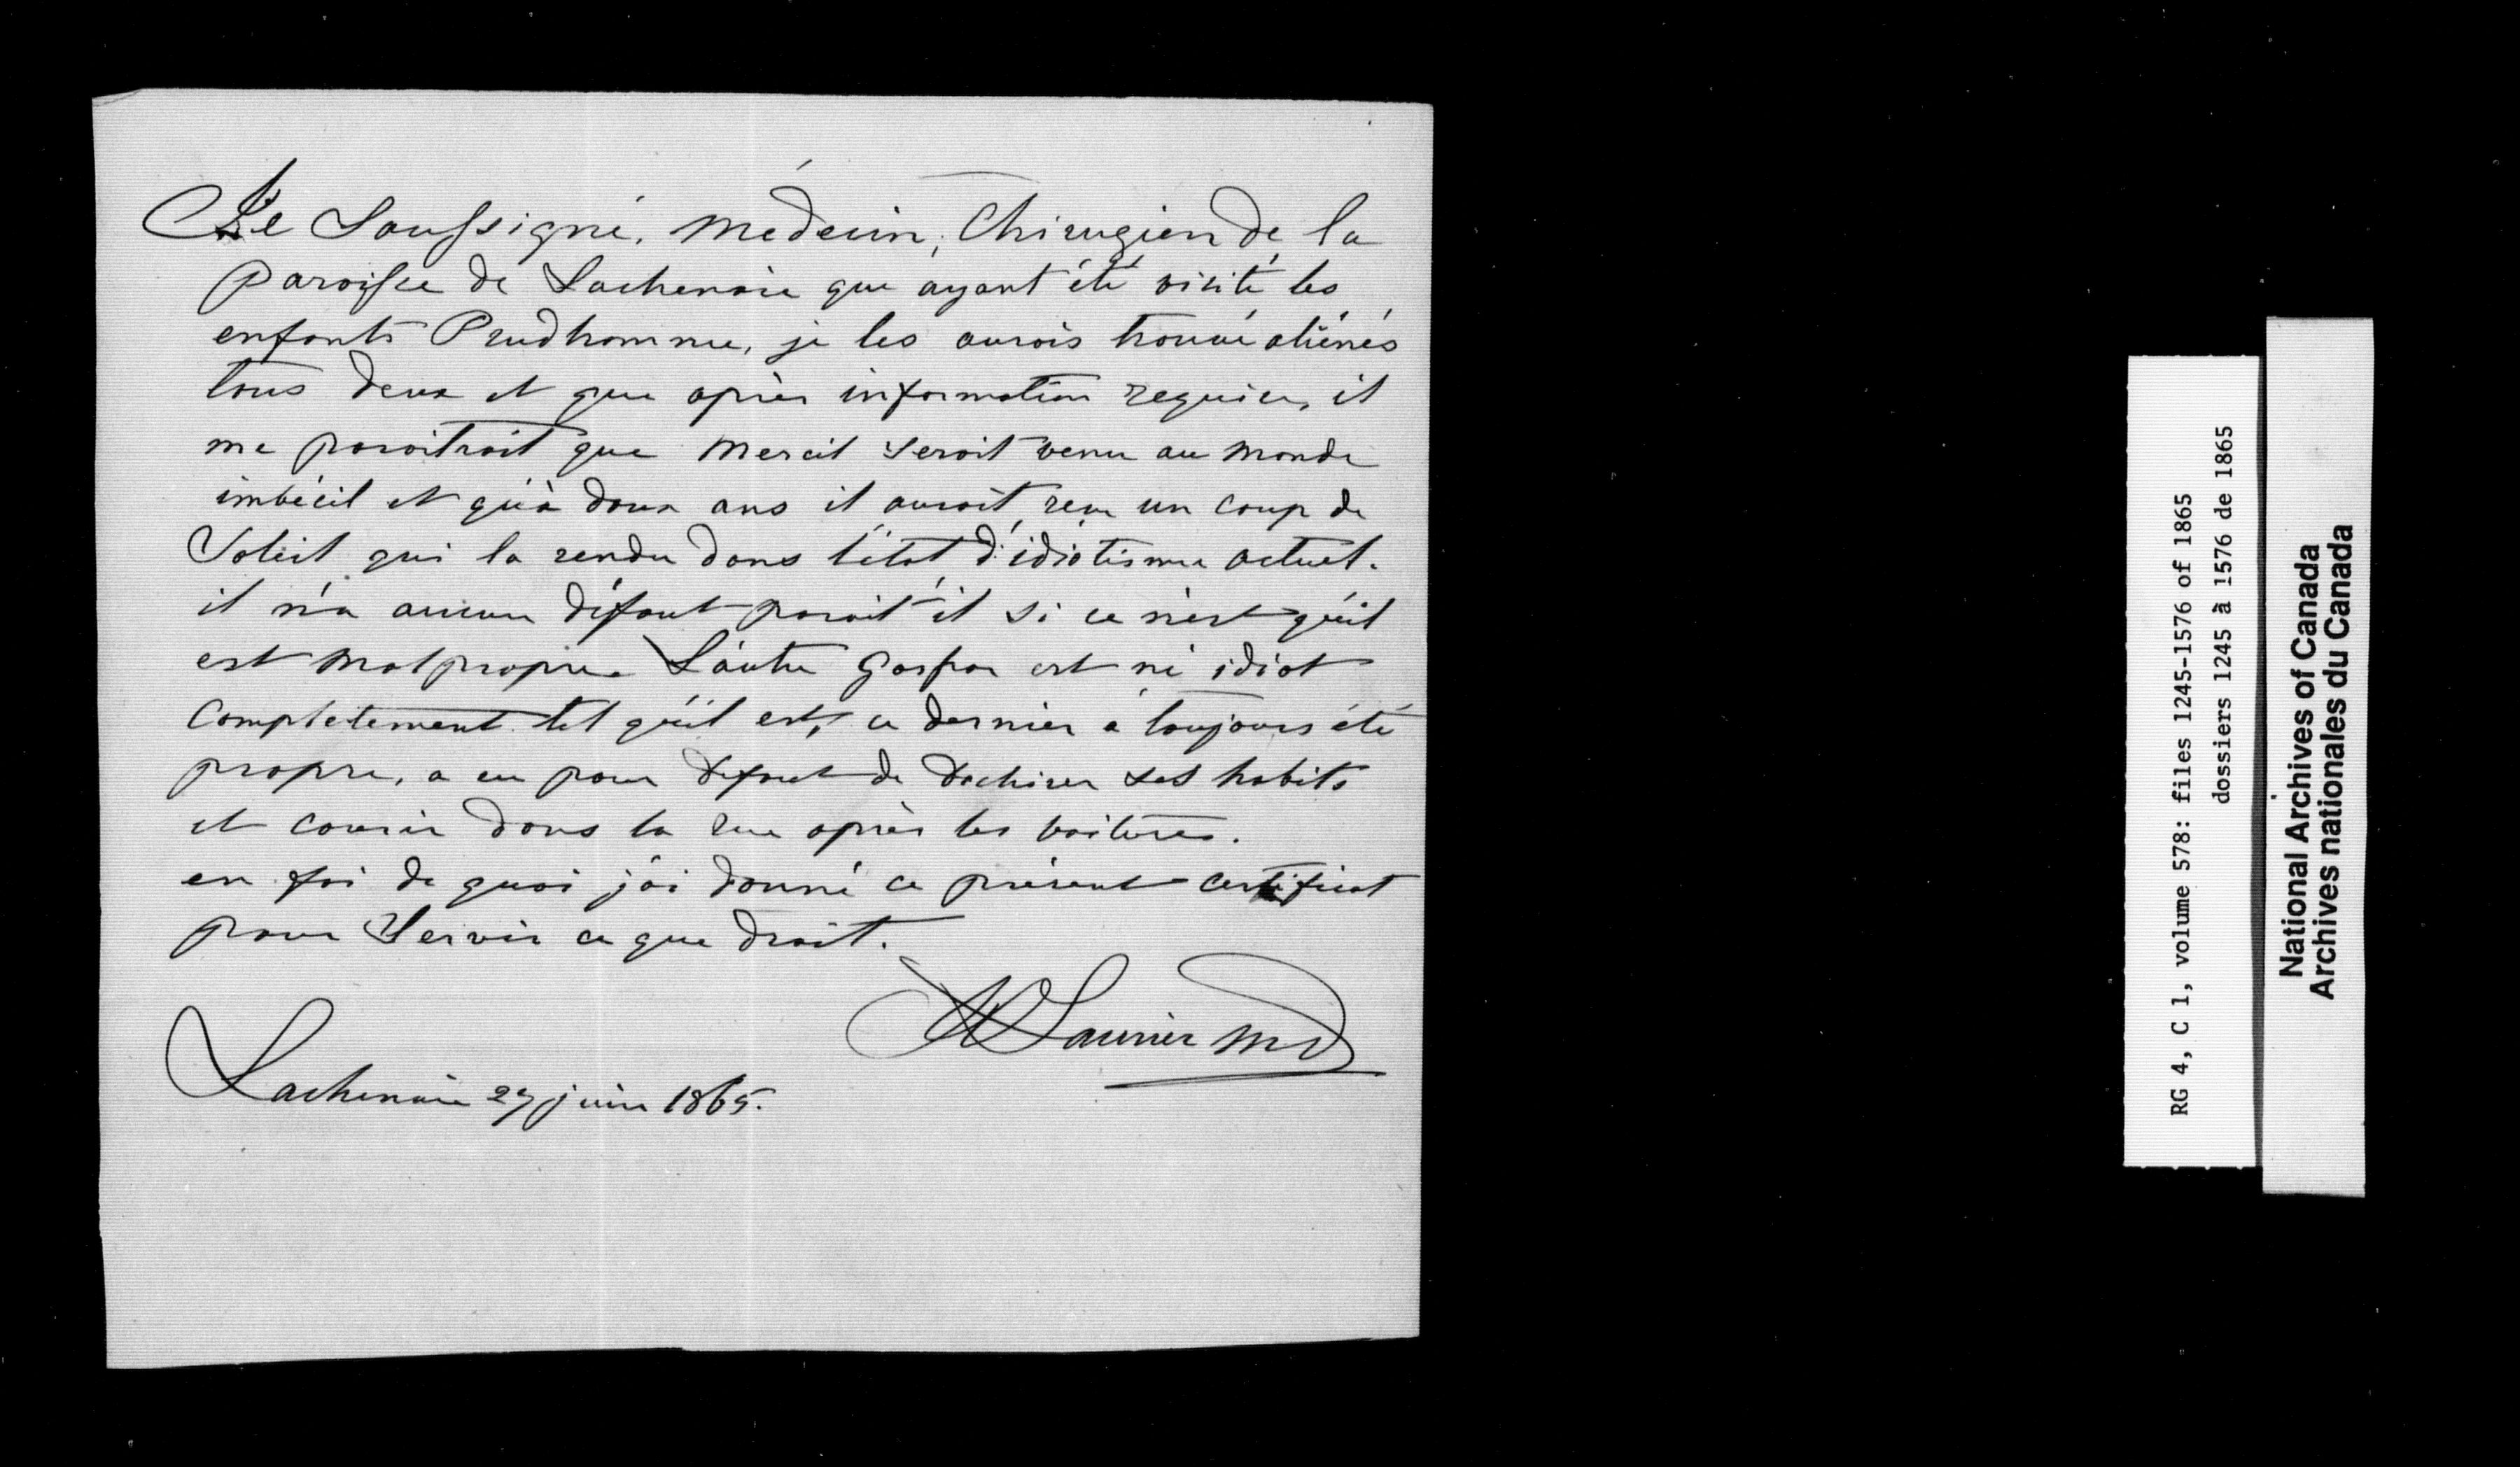 Le Soussigné, Médecin, Chirugien de la
paroisse de Lachenaie que ayant été visité les
enfants Prudhomme, je les aurois trouvé aliénés
tous deux et que après information requise, il
me paroitroit que Mercil seroit venu au monde
imbécil et qu'à deux ans il auroit reçu un coup de
Soleil qui la rendu dans l'état d'idiotisme actuel.
il n'a aucun défaut paroit il si ce n'est qu'il
est malpropre L'autre Gaspar est né idiot
Completement tel qu'il est, ce dernier a toujours été
propre, a eu pour défaut de dechirer ses habits
et courir dans la rue après les voitures.
en foi de quoi j'ai donné ce présent certificat
pour Servir ce que droit.
Laurier MD
Lachenaie 27 juin 1865.
RG 4, C 1, volume 578: files 1245-1576 of 1865
dossiers 1245 à 1576 de 1865
National Archives of Canada
Archives nationales du Canada